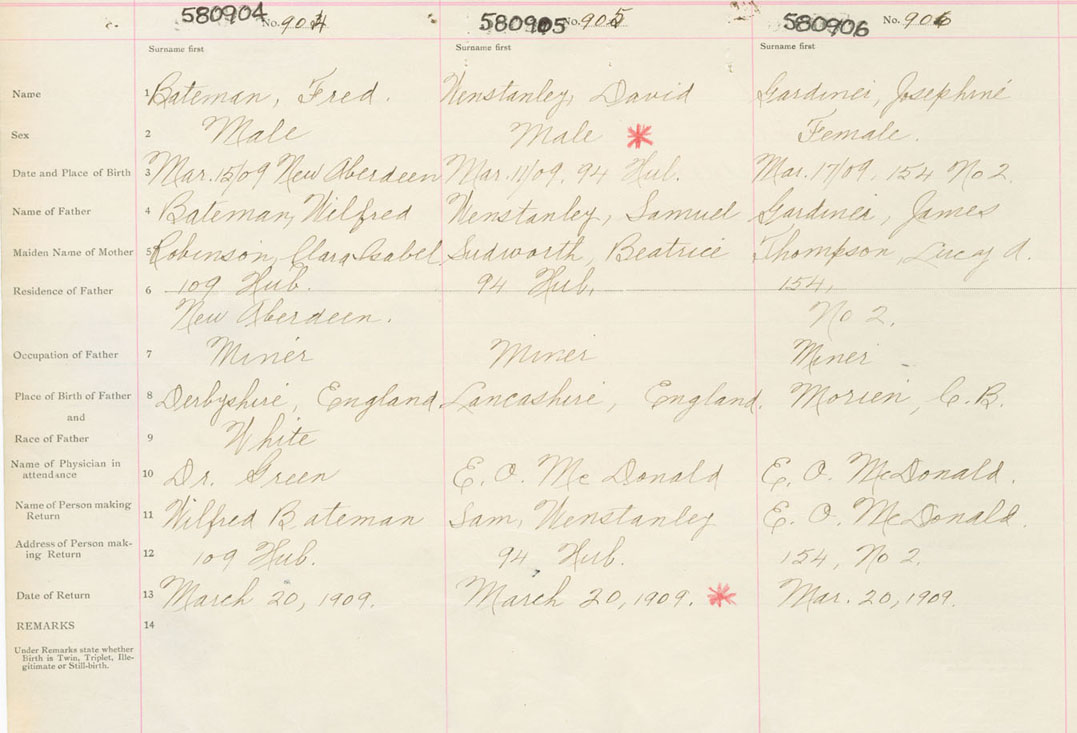 580904 No. 904 580905 No. 905 580906 No. 906
Surname first Surname first Surname first
Name 1 Bateman, Fred. Wenstanley, David Gardiner, Josephine
Sex 2 Male Male Female.
Date and Place of Birth 3 Mar. 15/09 New Aberdeen Mar. 11/09. 94 Hub. Mar. 17/09. 154 No 2.
Name of Father 4 Bateman, Wilfred Wenstanley, Samuel Gardiner, James
Maiden Name of Mother 5 Robinson, Clara Isabel Sudworth, Beatrice Thompson, Lucy A.
Residence of Father 6 109 Hub. 94 Hub, 154,
New Aberdeen. No 2.
Occupation of Father 7 Miner Miner Miner
Place of Birth of Father 8 Derbyshire, England Lancashire, England. Morien, C. B.
and
Race of Father 9 White
Name of Physician in
attendance 10 Dr. Green E. O. Mc Donald E. O. McDonald.
Name of Person making
Return 11 Wilfred Bateman Sam, Wenstanley E. O. McDonald.
Address of Person mak-
ing Return 12 109 Hub. 94 Hub. 154, No 2.
Date of Return 13 March 20, 1909. March 20, 1909. Mar. 20, 1909.
REMARKS 14
Under Remarks state whether
Birth is Twin, Triplet, Ille-
gitimate or Still-birth.